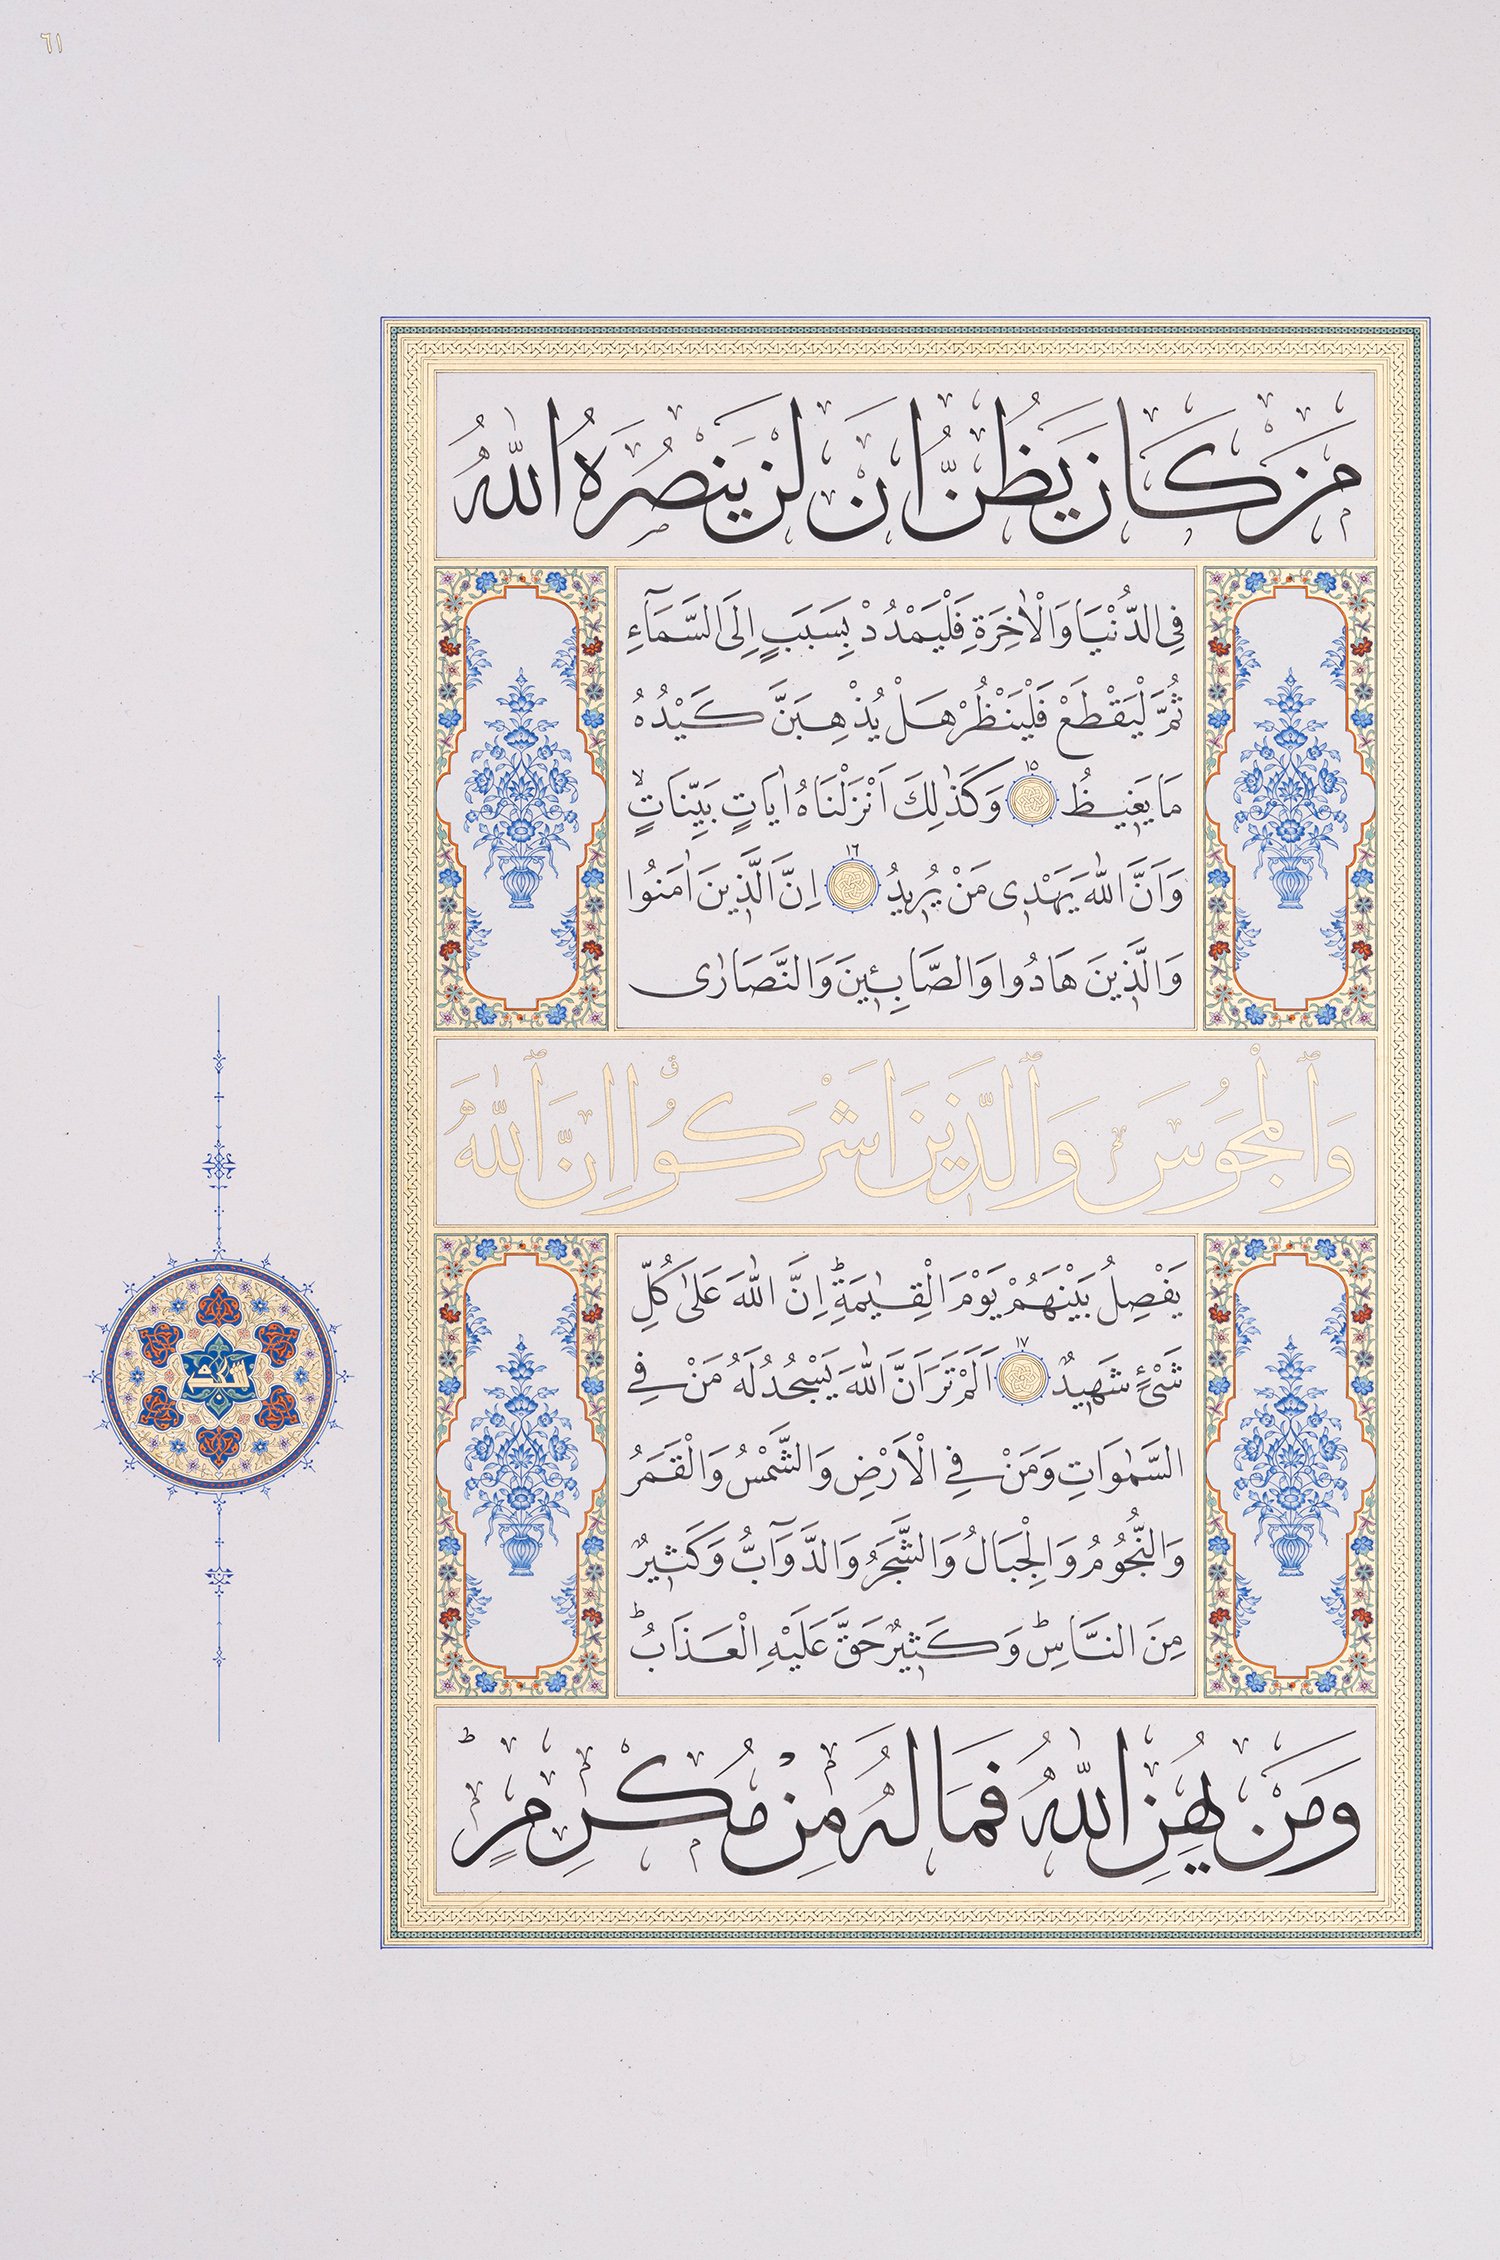 ٦١
مَنْ كَانَ يَظُنُّ اَنْ لَنْ يَنْصُرَهُ اللّٰهُ
فِى الدُّنْيَا وَالْاٰخِرَةِ فَلْيَمْدُدْ بِسَبَبٍ اِلَى السَّمَٓاءِ
ثُمَّ لْيَقْطَعْ فَلْيَنْظُرْ هَلْ يُذْهِبَنَّ كَيْدُهُ
مَا يَغِيظُ ١٥ وَكَذٰلِكَ اَنْزَلْنَاهُ اٰيَاتٍ بَيِّنَاتٍۙ
وَاَنَّ اللّٰهَ يَهْدِى مَنْ يُرِيدُ ١٦ اِنَّ الَّذِينَ اٰمَنُوا
وَالَّذِينَ هَادُوا وَالصَّابِـِٔينَ وَالنَّصَارٰى
وَٱلْمَجُوسَ وَٱلَّذِينَ اَشْرَكُواۗ اِنَّ ٱللّٰهَ
يَفْصِلُ بَيْنَهُمْ يَوْمَ الْقِيٰمَةِۜ اِنَّ اللّٰهَ عَلٰى كُلِّ
شَىْءٍ شَهِيدٌ ١٧ اَلَمْ تَرَ اَنَّ اللّٰهَ يَسْجُدُ لَهُ مَنْ فِى
السَّمٰوَاتِ وَمَنْ فِى الْاَرْضِ وَالشَّمْسُ وَالْقَمَرُ
وَالنُّجُومُ وَالْجِبَالُ وَالشَّجَرُ وَالدَّوَٓابُّ وَكَثِيرٌ
مِنَ النَّاسِۜ وَكَثِيرٌ حَقَّ عَلَيْهِ الْعَذَابُۜ
وَمَنْ يُهِنِ اللّٰهُ فَمَا لَهُ مِنْ مُكْرِمٍۜ